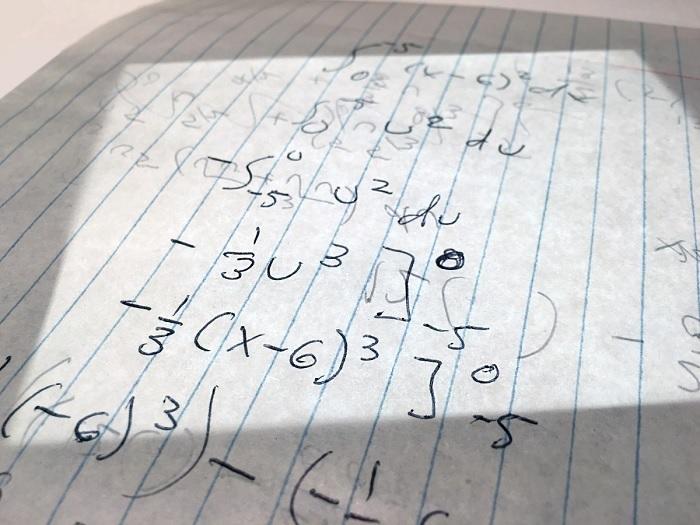 ∫₀⁻⁵ (x-6)² dx
∫₀⁻⁵ u² du
-∫₋₅⁰ u² du
-1/3 u³ ]₋₅⁰
-1/3 (x-6)³ ]₋₅⁰
(-6)³) - (-1